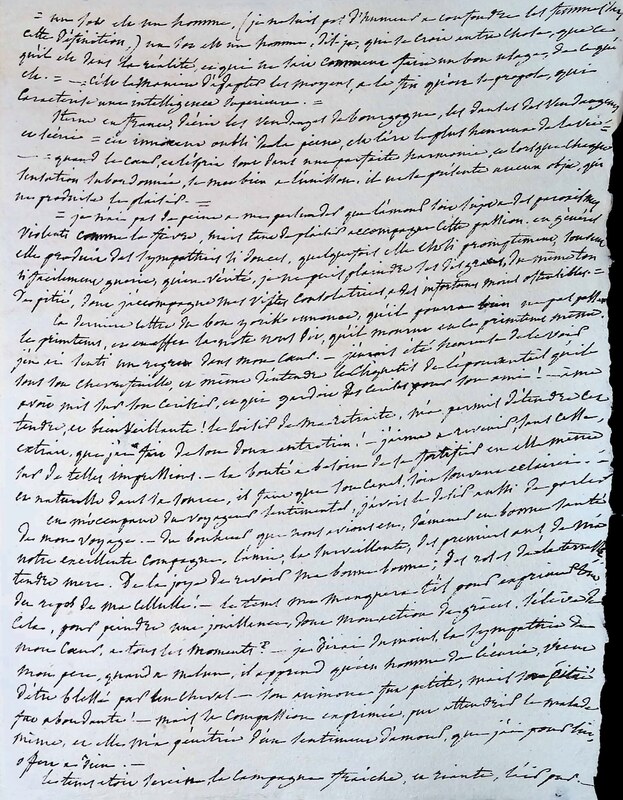 = un sot est un homme, (je ne suis pas d'humeur a confondre les femmes dans
cette définition,) un sot est un homme, dis je, qui se croit autre chose, que ce
qu'il est dans la réalité, et qui ne sait comment faire un bon usage, de ce qu'il
est. = — c'est la maniere d'adapter les moyens, a la fin qu'on se propose, qui
caracterise une intelligence superieure. =
Sterne en france, décrit les vendanges de bourgogne, les danses des vendangeurs
et s'écrie = cet oubli de la peine, est l'ère la plus heureuse de la vie =
— = quand le coeur, et l'esprit sont dans une parfaite harmonie, et lorsque chaque
sensation subordonnée, se met bien a l'unisson, il ne se présente aucun objet, qui
ne produise le plaisir. =
= je n'ai pas de peine a me persuader que l'amour soit sujet a des paroxismes
violents comme la fievre, mais tant de plaisir accompagne cette passion. en général
elle produit des sympathies si douces, quelquefois elle cesse promptement, souvent
si facilement guerie, qu'en verité, je ne puis plaindre ses disgraces, du même ton
de pitié, dont j'accompagne mes visites consolatrices, a des infortunes moins ostensibles =
La derniere lettre du bon yorik annonce, qu'il pourra bien ne pas passer
le printems, et en effet la note nous dit, qu'il mourut en le printems même.
j'en ai senti un regret dans mon coeur. — j'aurois été heureuse de le voir
sous son chevrefeuille, et même d'entendre le cliquetis de l'épouvantail qu'il
avoit mis sur son cerisier, et que gardoit des cerises pour son ami! — ame
tendre, et bienveillante! le loisir de ma retraite, m'a permis d'étendre cet
extrait, que j'ai fait de son doux entretien! — j'aime a revenir, sans cesse,
sur de telles impressions. — la bonté a besoin de se fortifier en elle même
et naturelle dans sa source, il faut que son canal, soit souvent eclairci. —
en m'occupant du voyageur sentimental, j'avois le desir aussi de parler
de mon voyage. — du bonheur que nous avions eu, d'amener en bonne santé
notre excellente compagne, l'amie, la surveillante, des premiers ans, de ma
tendre mere. De la joye de revoir ma bonne bonne; des roses de la terrasse,
du repos de ma cellule! — le tems me manquera t'il pour exprimer tout
cela, pour peindre une jouissance, dont mon action de grâces, s'élève de
mon coeur, a tous les moments? — je dirai du moins, la sympathie de
mon pere, quand a melun, il apprend qu'un homme de l'écurie, vient
d'être blessé par un cheval. — son aumone fut petite, mais sa pitié
fut abondante! — mais sa compassion exprimée, put attendrir le malade
même, et elle m'a pénétrée d'un sentiment d'amour, que j'ai pour lui
offert a dieu. —
le tems etoit serein, la campagne fraiche, et riante,